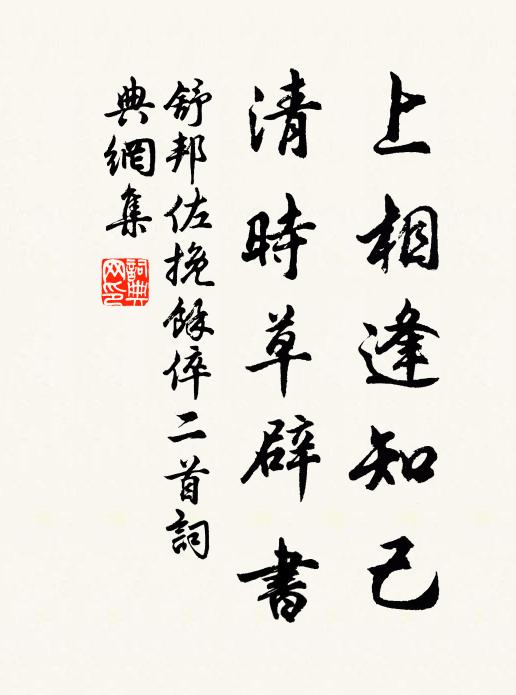 上相逢知己
清時草辟書
舒邦佐挽餘倅二首詞
典網集
詞典
网印